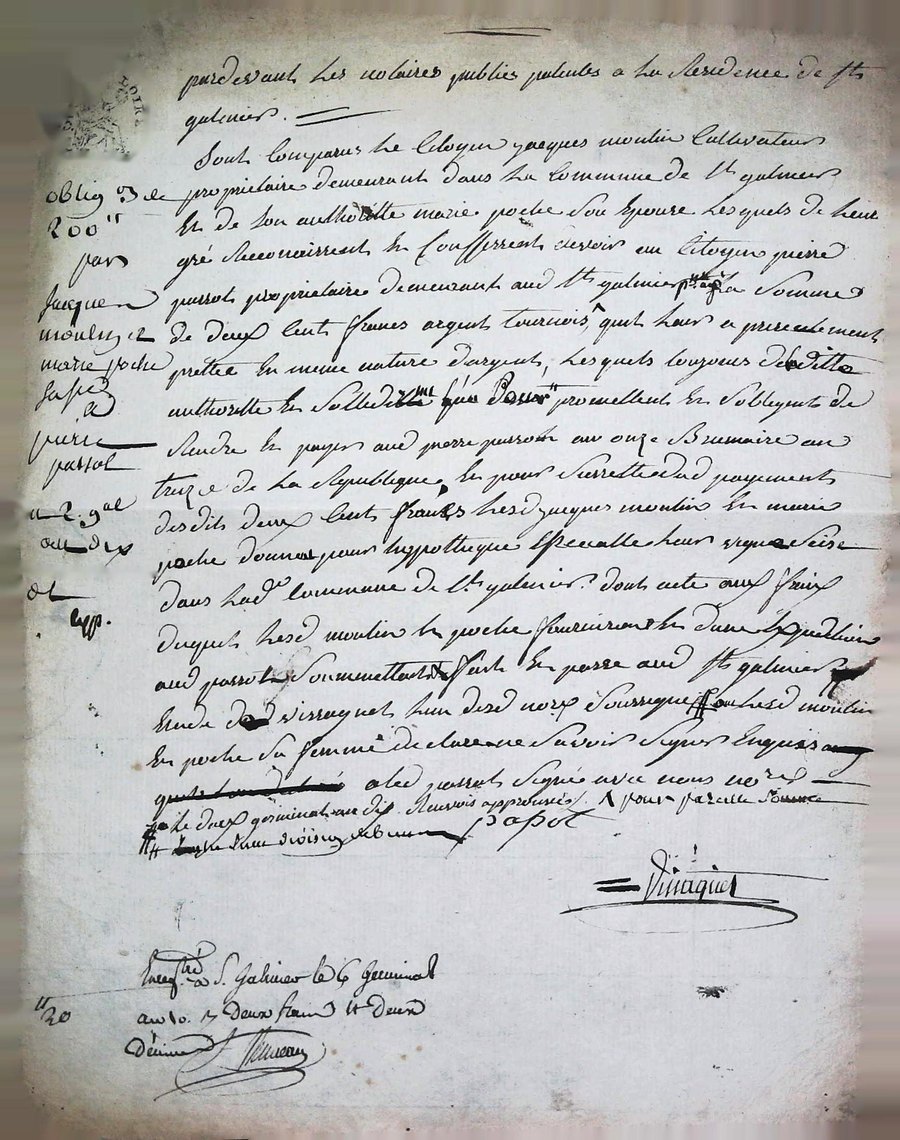 pardevant Les notaires publics patentés a La Residence de St
galmier.
Sont Comparus Le Citoyen jacques moulin Cultivateur
proprietaire demeurant dans La Commune de St galmier
Et de son authoritte marie poche Son Epouse Lesquels de Leur
gré Reconaissent Et Confessent devoir au Citoyen pierre
passot proprietaire demeurant aud St galmier La Somme
de deux Cent francs argent tournois quil Leur a presentement
prettée En meme nature dargent, Lesquels toujours de Laditte
authoritte Et promettent Et Sobligent de
Rendre Et payer aud pierre passot au onze Brumaire an
treize de La Republique, Et pour Surretté dud payement
desdits deux Cent francs Lesd jacques moulin Et marie
poche donnent pour hypothèque Specialle Leur vigne Scise
dans Lad Commune de St galmier. dont acte aux fraix
duquel Lesd moulin Et poche fourniront Et dune Expedition
aud passot Soumettant fait Et passé aud St galmier
Etude de vissaguet Lun desd nores Soussigné Lesd moulin
Et poche Sa femme declare ne Savoir Signer Enquis
a led passot Signé avec nous nore
Le deux germinal an dix. Renvois approuvés. pour pareille Somme
papot
Vissaguet
oblig on de
200 tt
par
Jacques
moulin et
marie poche
Sa fe
à
pierre
passot
2 gal
an dix
et
Exp.
Enregtré à S. Galmier le 6 Germinal
an 10. Deux francs Deux
Décimes
20